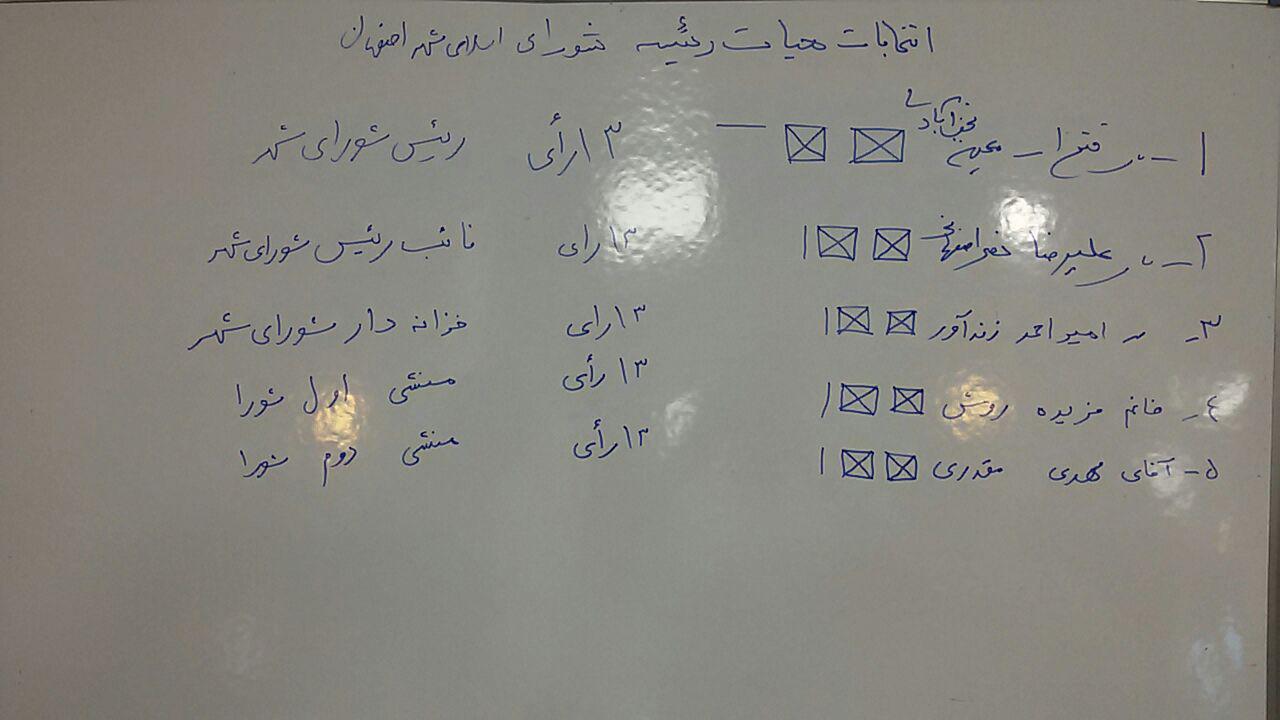 انتخابات هیات رئیسه شورای اسلامی شهر اصفهان
۱ - فتح ا... معین نجف آبادی ۱۳ رأی رئیس شورای شهر
۲ - علیرضا نصر اصفهانی ۱۳ رای نائب رئیس شورای شهر
۳ - امیر احمد زندآور ۱۳ رای خزانه دار شورای شهر
۴ - خانم فریده روشن ۱۳ رأی منشی اول شورا
۵ - آقای مهدی مقدری ۱۳ رأی منشی دوم شورا